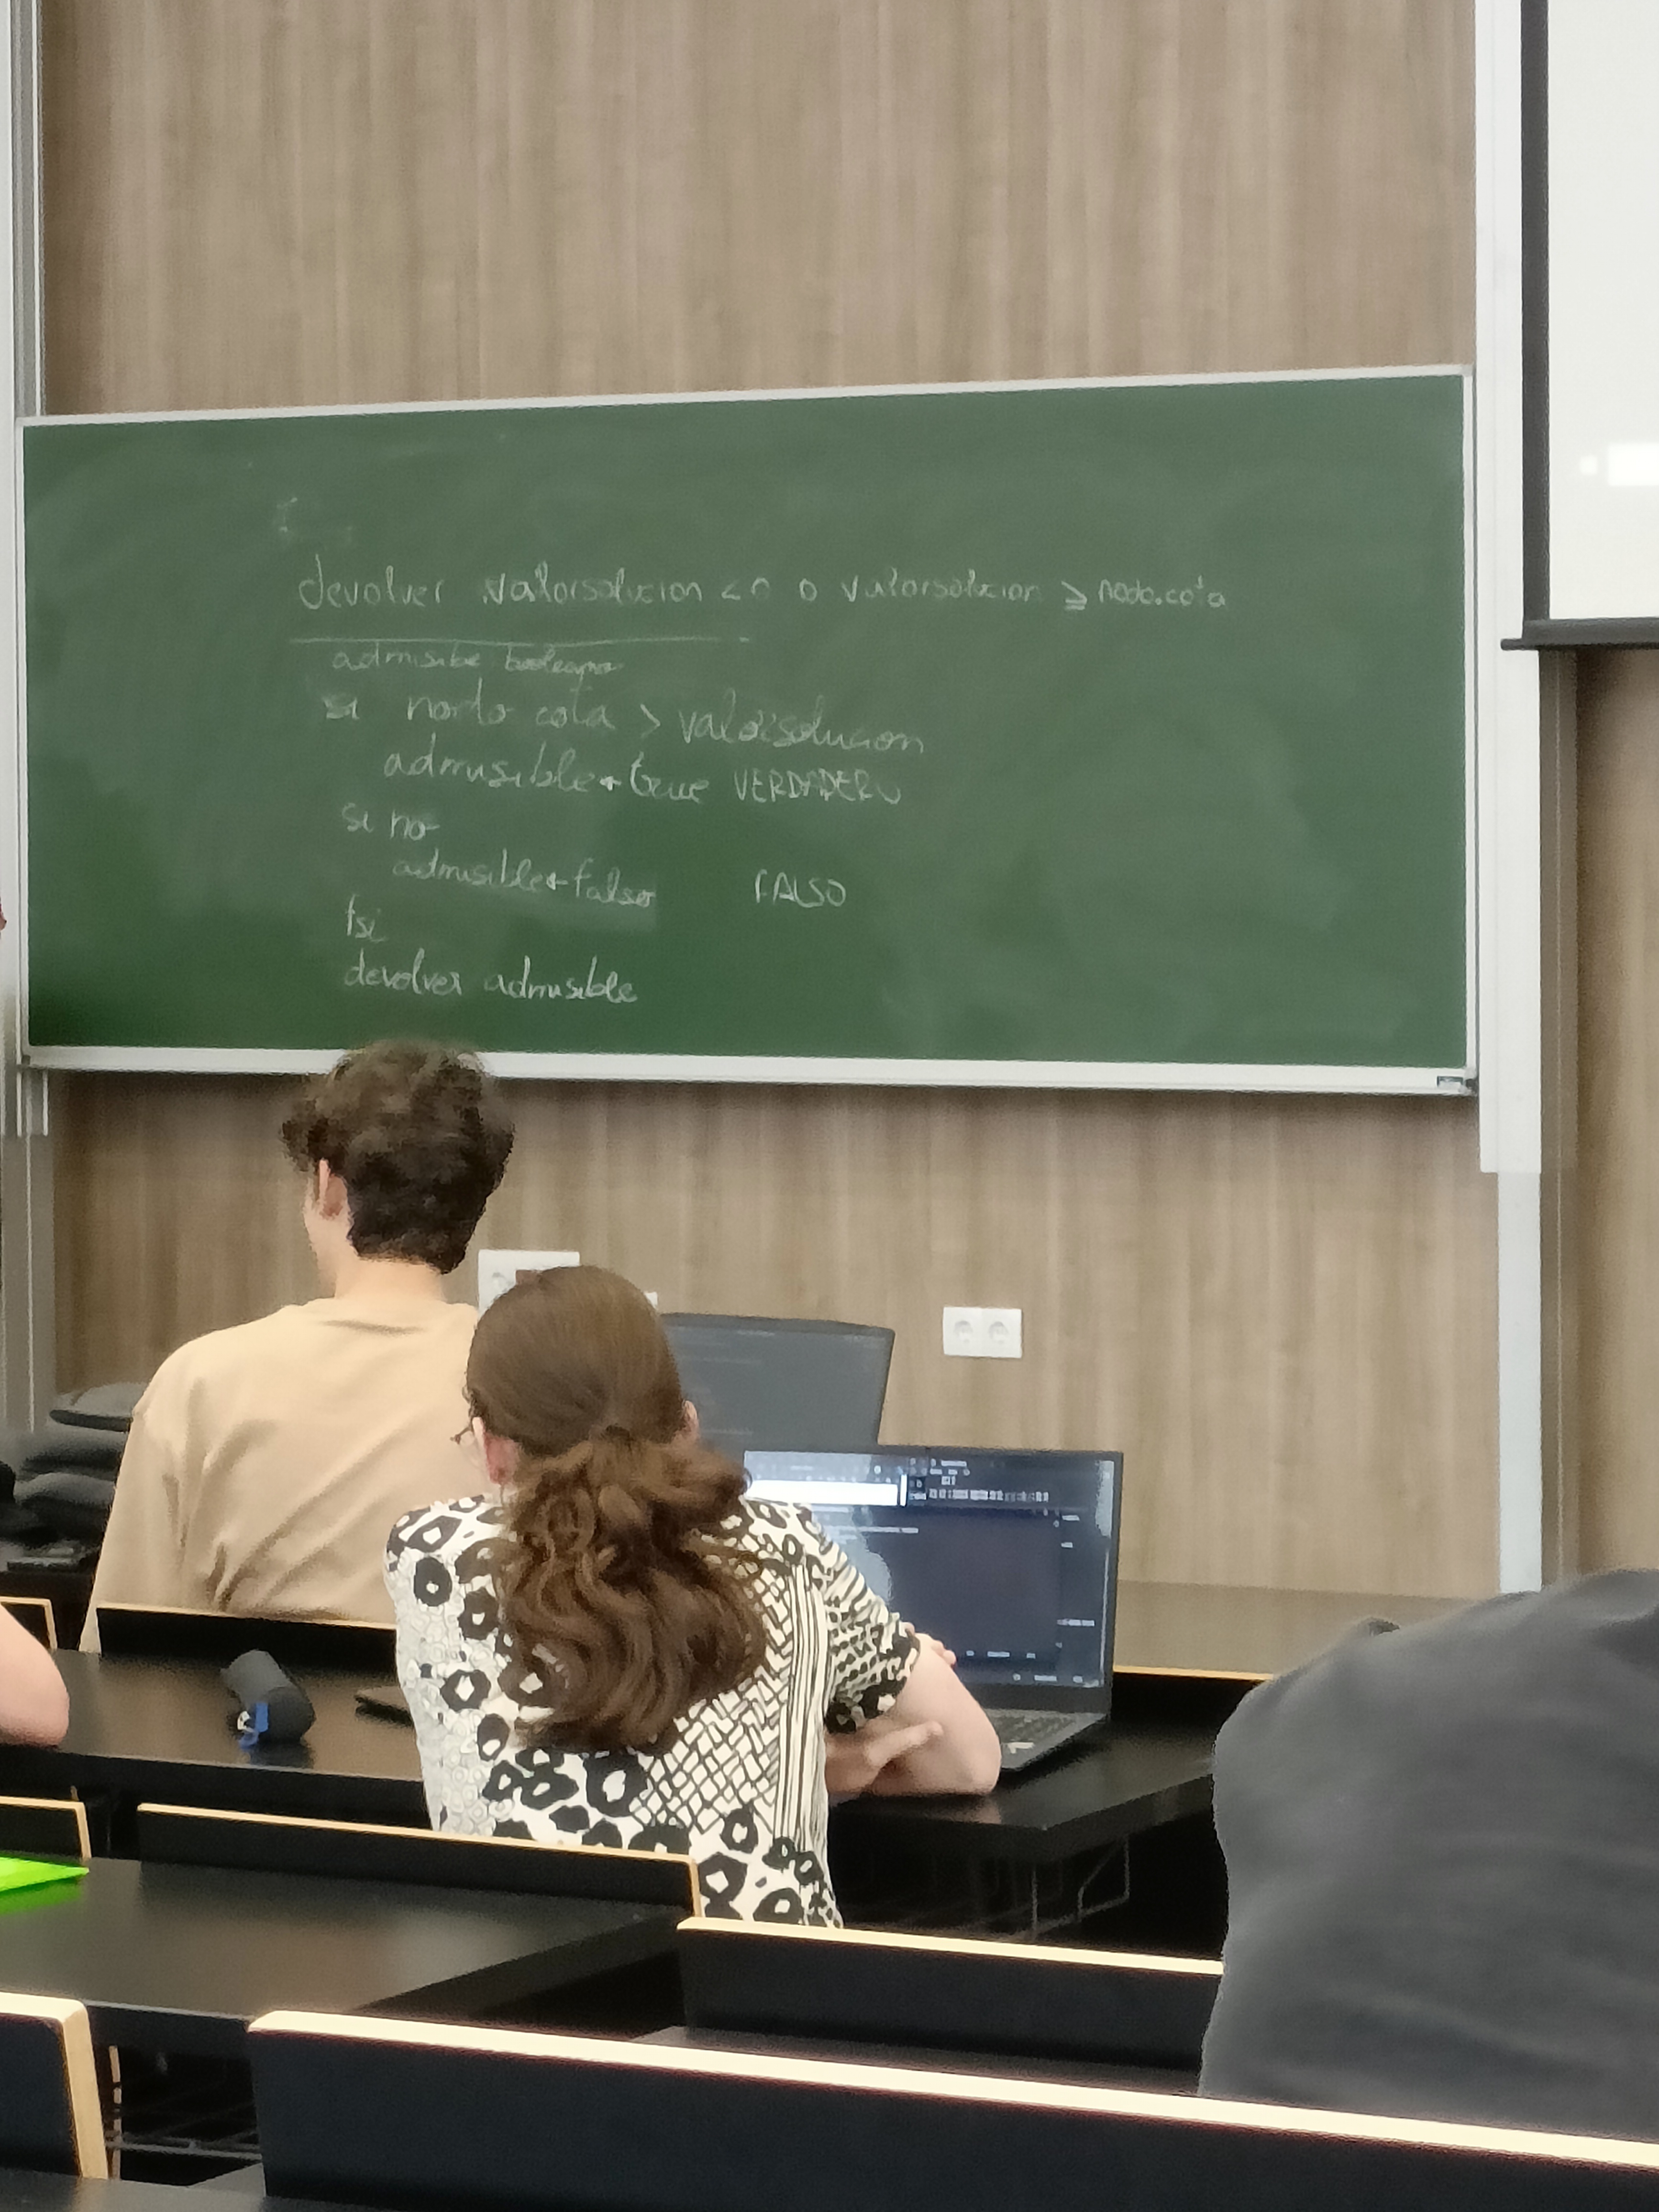 devolver valorsolucion <0 o valorsolucion ≥ nodo.cota
admisibe booleano
si nodo cota > valorsolucion
admisible ← true VERDADERO
si no
admisible ← falso FALSO
fsi
devolver admisible